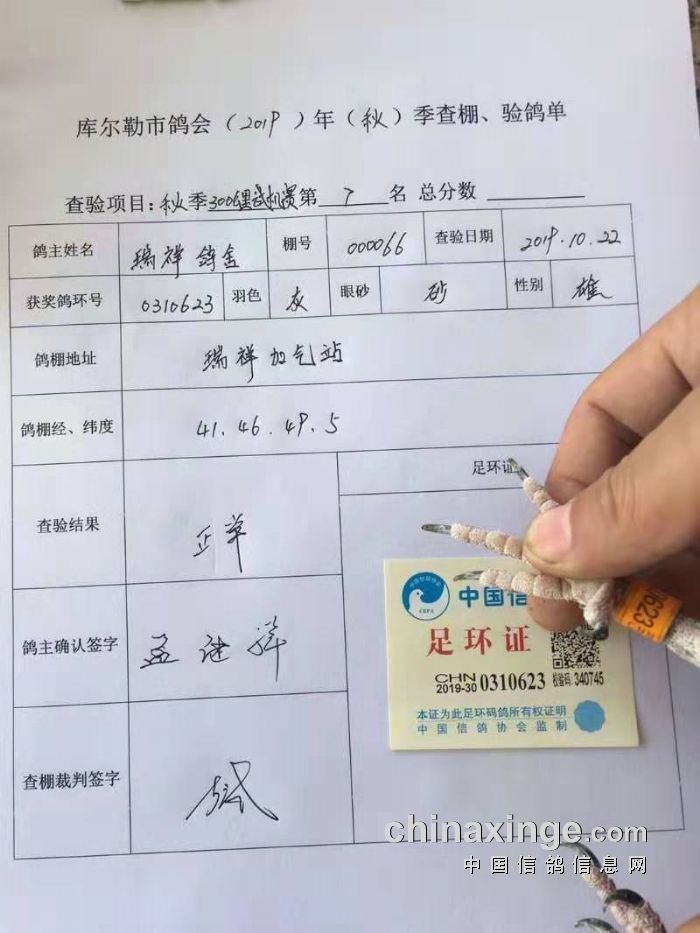 库尔勒市鸽会（2019）年（秋）季查棚、验鸽单
查验项目：秋季300公里 第 7 名 总分数
鸽主姓名 瑞祥鸽舍 棚号 000066 查验日期 2019.10.22
获奖鸽环号 0310623 羽色 灰 眼砂 砂 性别 雄
鸽棚地址 瑞祥加气站
鸽棚经、纬度 41.46.49.5
查验结果 正常
足环证
鸽主确认签字 孟
查棚裁判签字
中国信
足环证
CHN
2019-30 0310623 校验码: 340745
本证为此足环码鸽所有权证明
中国信鸽协会监制
0623
chinaxinge.com
中国信鸽信息网